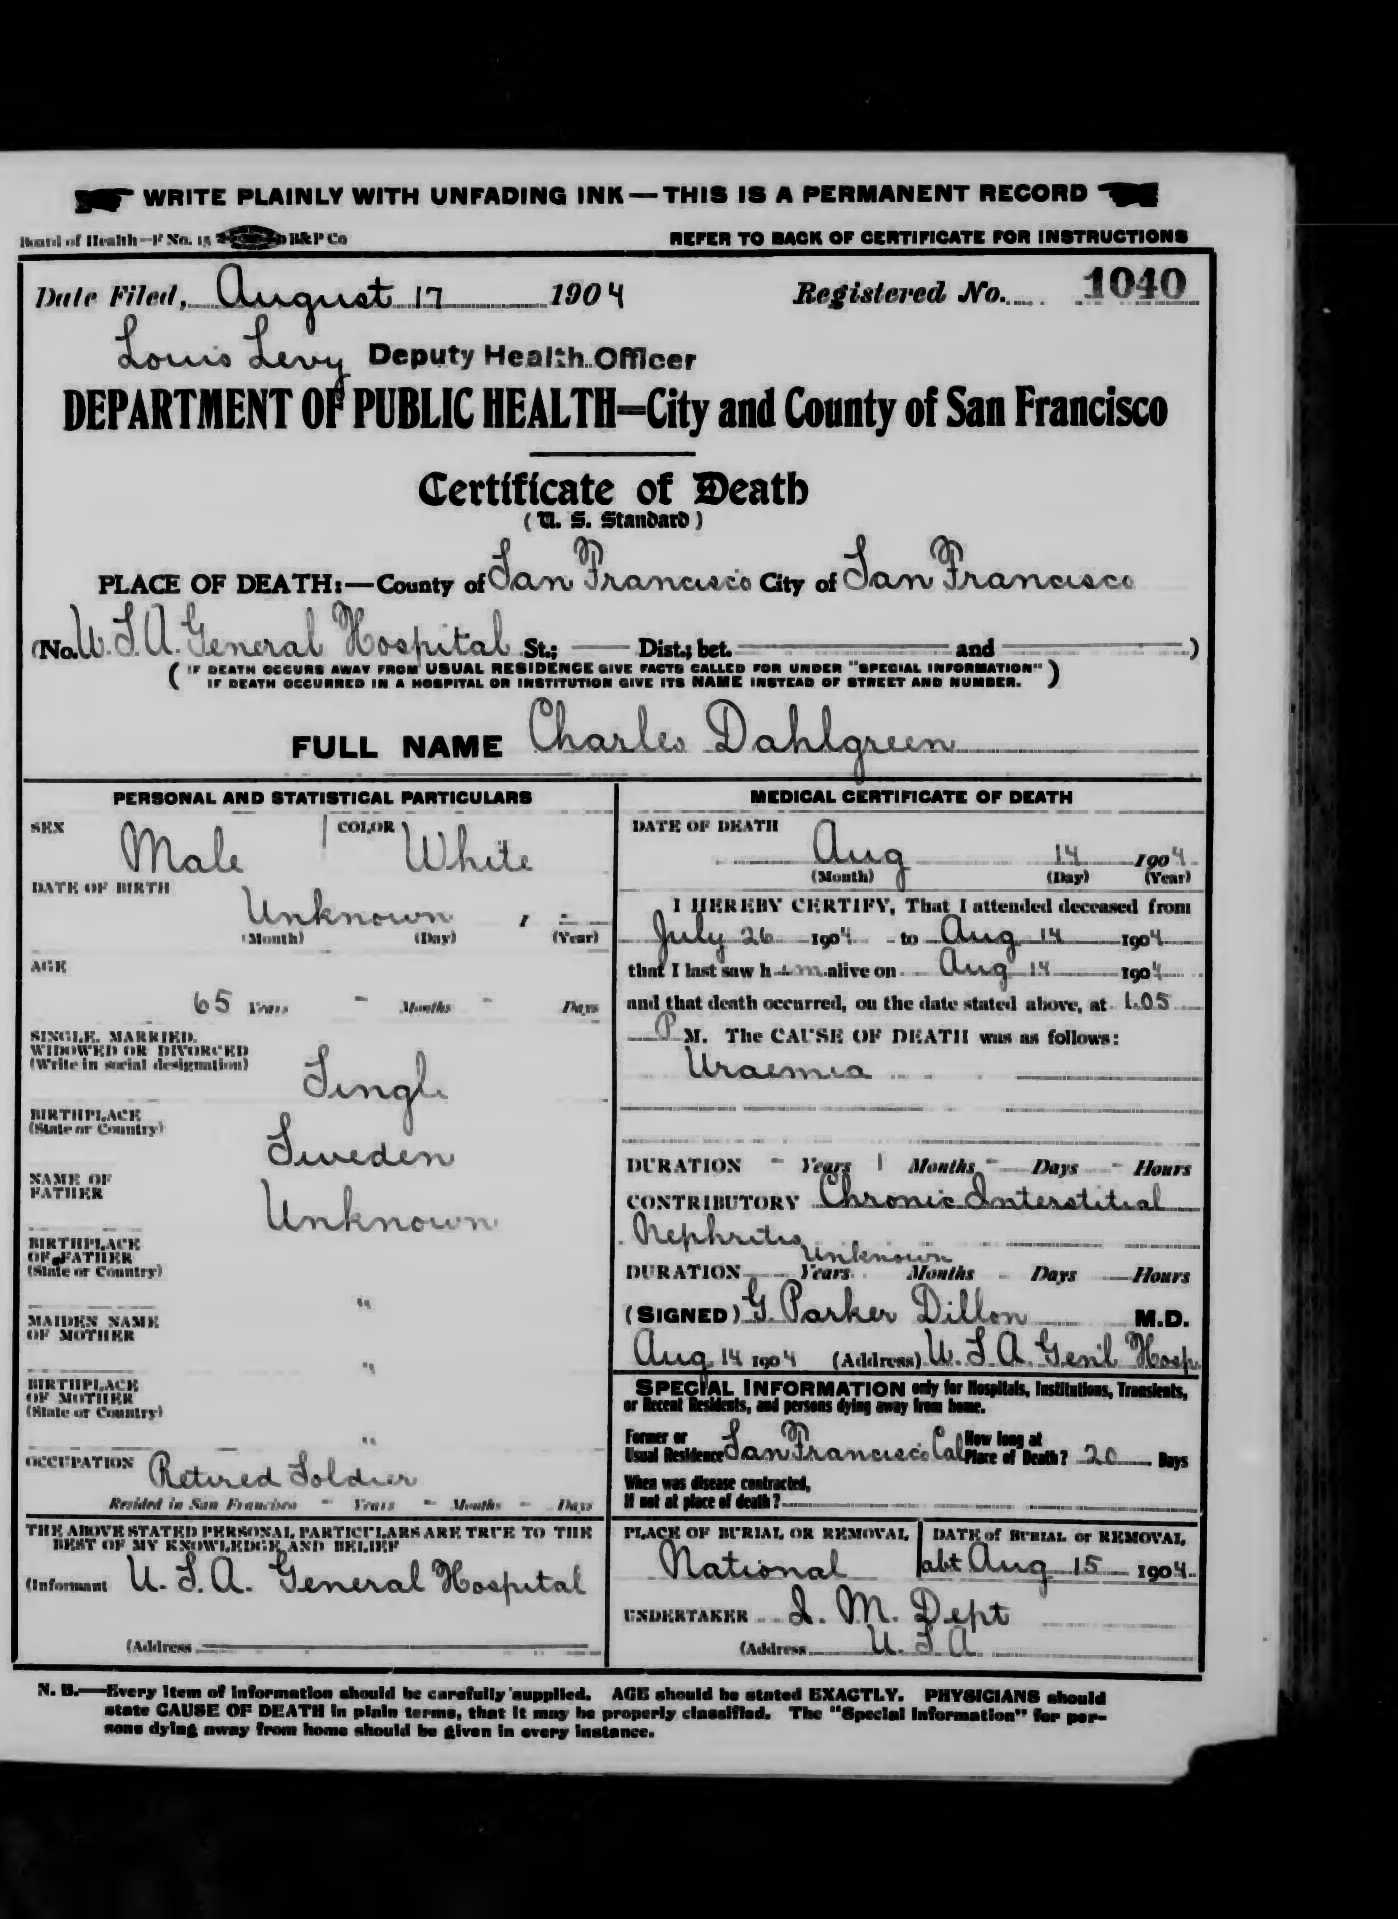 WRITE PLAINLY WITH UNFADING INK—THIS IS A PERMANENT RECORD
Board of Health—F No. 15 B&P Co
REFER TO BACK OF CERTIFICATE FOR INSTRUCTIONS
Date Filed, August 17 1904 Registered No. 1040
Louis Levy Deputy Health Officer
DEPARTMENT OF PUBLIC HEALTH=City and County of San Francisco
Certificate of Death
(U. S. Standard)
PLACE OF DEATH:—County of San Francisco City of San Francisco
(No. U.S.A. General Hospital St.; Dist.; bet. and )
(IF DEATH OCCURS AWAY FROM USUAL RESIDENCE GIVE FACTS CALLED FOR UNDER "SPECIAL INFORMATION"
IF DEATH OCCURRED IN A HOSPITAL OR INSTITUTION GIVE ITS NAME INSTEAD OF STREET AND NUMBER.)
FULL NAME Charles Dahlgreen
PERSONAL AND STATISTICAL PARTICULARS
SEX Male COLOR White
DATE OF BIRTH
Unknown 1
(Month) (Day) (Year)
AGE
65 Years - Months - Days
SINGLE, MARRIED,
WIDOWED OR DIVORCED
(Write in social designation)
Single
BIRTHPLACE
(State or Country)
Sweden
NAME OF
FATHER
Unknown
BIRTHPLACE
OF FATHER
(State or Country)
"
MAIDEN NAME
OF MOTHER
"
BIRTHPLACE
OF MOTHER
(State or Country)
"
OCCUPATION Retired Soldier
Resided in San Francisco - Years - Months - Days
THE ABOVE STATED PERSONAL PARTICULARS ARE TRUE TO THE
BEST OF MY KNOWLEDGE AND BELIEF
(Informant U.S.A. General Hospital
(Address
MEDICAL CERTIFICATE OF DEATH
DATE OF DEATH
Aug 14 1904
(Month) (Day) (Year)
I HEREBY CERTIFY, That I attended deceased from
July 26 1904 to Aug 14 1904
that I last saw him alive on Aug 14 1904
and that death occurred, on the date stated above, at 1.05
P M. The CAUSE OF DEATH was as follows:
Uraemia
DURATION - Years 1 Months - Days - Hours
CONTRIBUTORY Chronic Interstitial
Nephritis
Unknown
DURATION Years Months Days Hours
(SIGNED) G. Parker Dillon M.D.
Aug 14 1904 (Address) U.S.A. Gen'l Hosp
SPECIAL INFORMATION only for Hospitals, Institutions, Transients,
or Recent Residents, and persons dying away from home.
Former or
Usual Residence San Francisco Cal How long at
Place of Death? 20 Days
When was disease contracted,
If not at place of death?
PLACE OF BURIAL OR REMOVAL
National
DATE of BURIAL or REMOVAL
abt Aug 15 1904
UNDERTAKER Q. M. Dept
(Address U.S.A.
N. B.—Every item of information should be carefully supplied. AGE should be stated EXACTLY. PHYSICIANS should
state CAUSE OF DEATH in plain terms, that it may be properly classified. The "Special Information" for per-
sons dying away from home should be given in every instance.